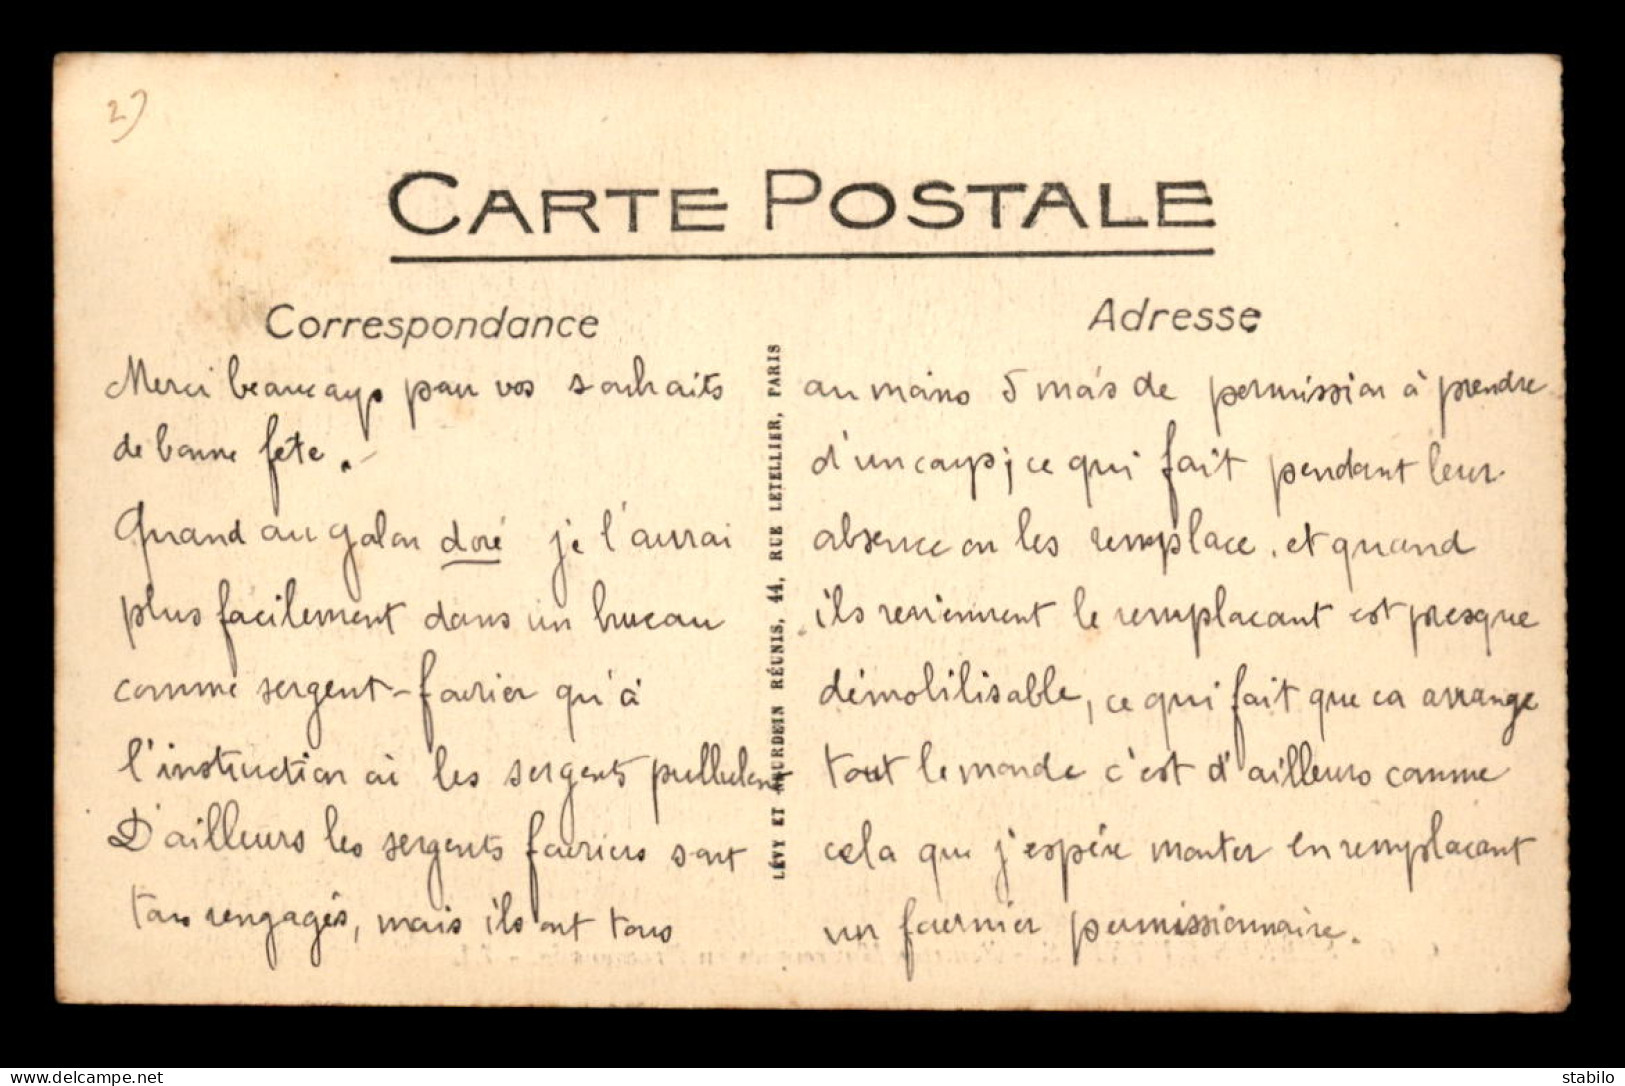 2)
CARTE POSTALE
Correspondance
Merci beaucoup pour vos souhaits
de bonne fete.-
Quand au galon doré je l'aurai
plus facilement dans un bureau
comme sergent-fourier qu'à
l'instruction où les sergents pullulent
D'ailleurs les sergents fourriers sont
tous rengagés, mais ils ont tous
LÉVY ET NEURDEIN RÉUNIS, 44, RUE LETELLIER, PARIS
Adresse
au moins 5 mois de permission à prendre
d'un coup; ce qui fait pendant leur
absence on les remplace. et quand
ils reviennent le remplacant est presque
démobilisable, ce qui fait que ca arrange
tout le monde c'est d'ailleurs comme
cela que j'espére monter en remplacant
un fourrier permissionnaire.
www.delcampe.net
stabilo